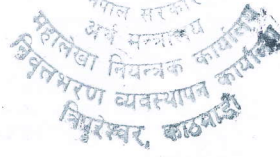 नेपाल सरकार
अर्थ मन्त्रालय
महालेखा नियन्त्रक कार्यालय
निवृत्तभरण व्यवस्थापन कार्यालय
त्रिपुरेश्वर, काठमाडौं